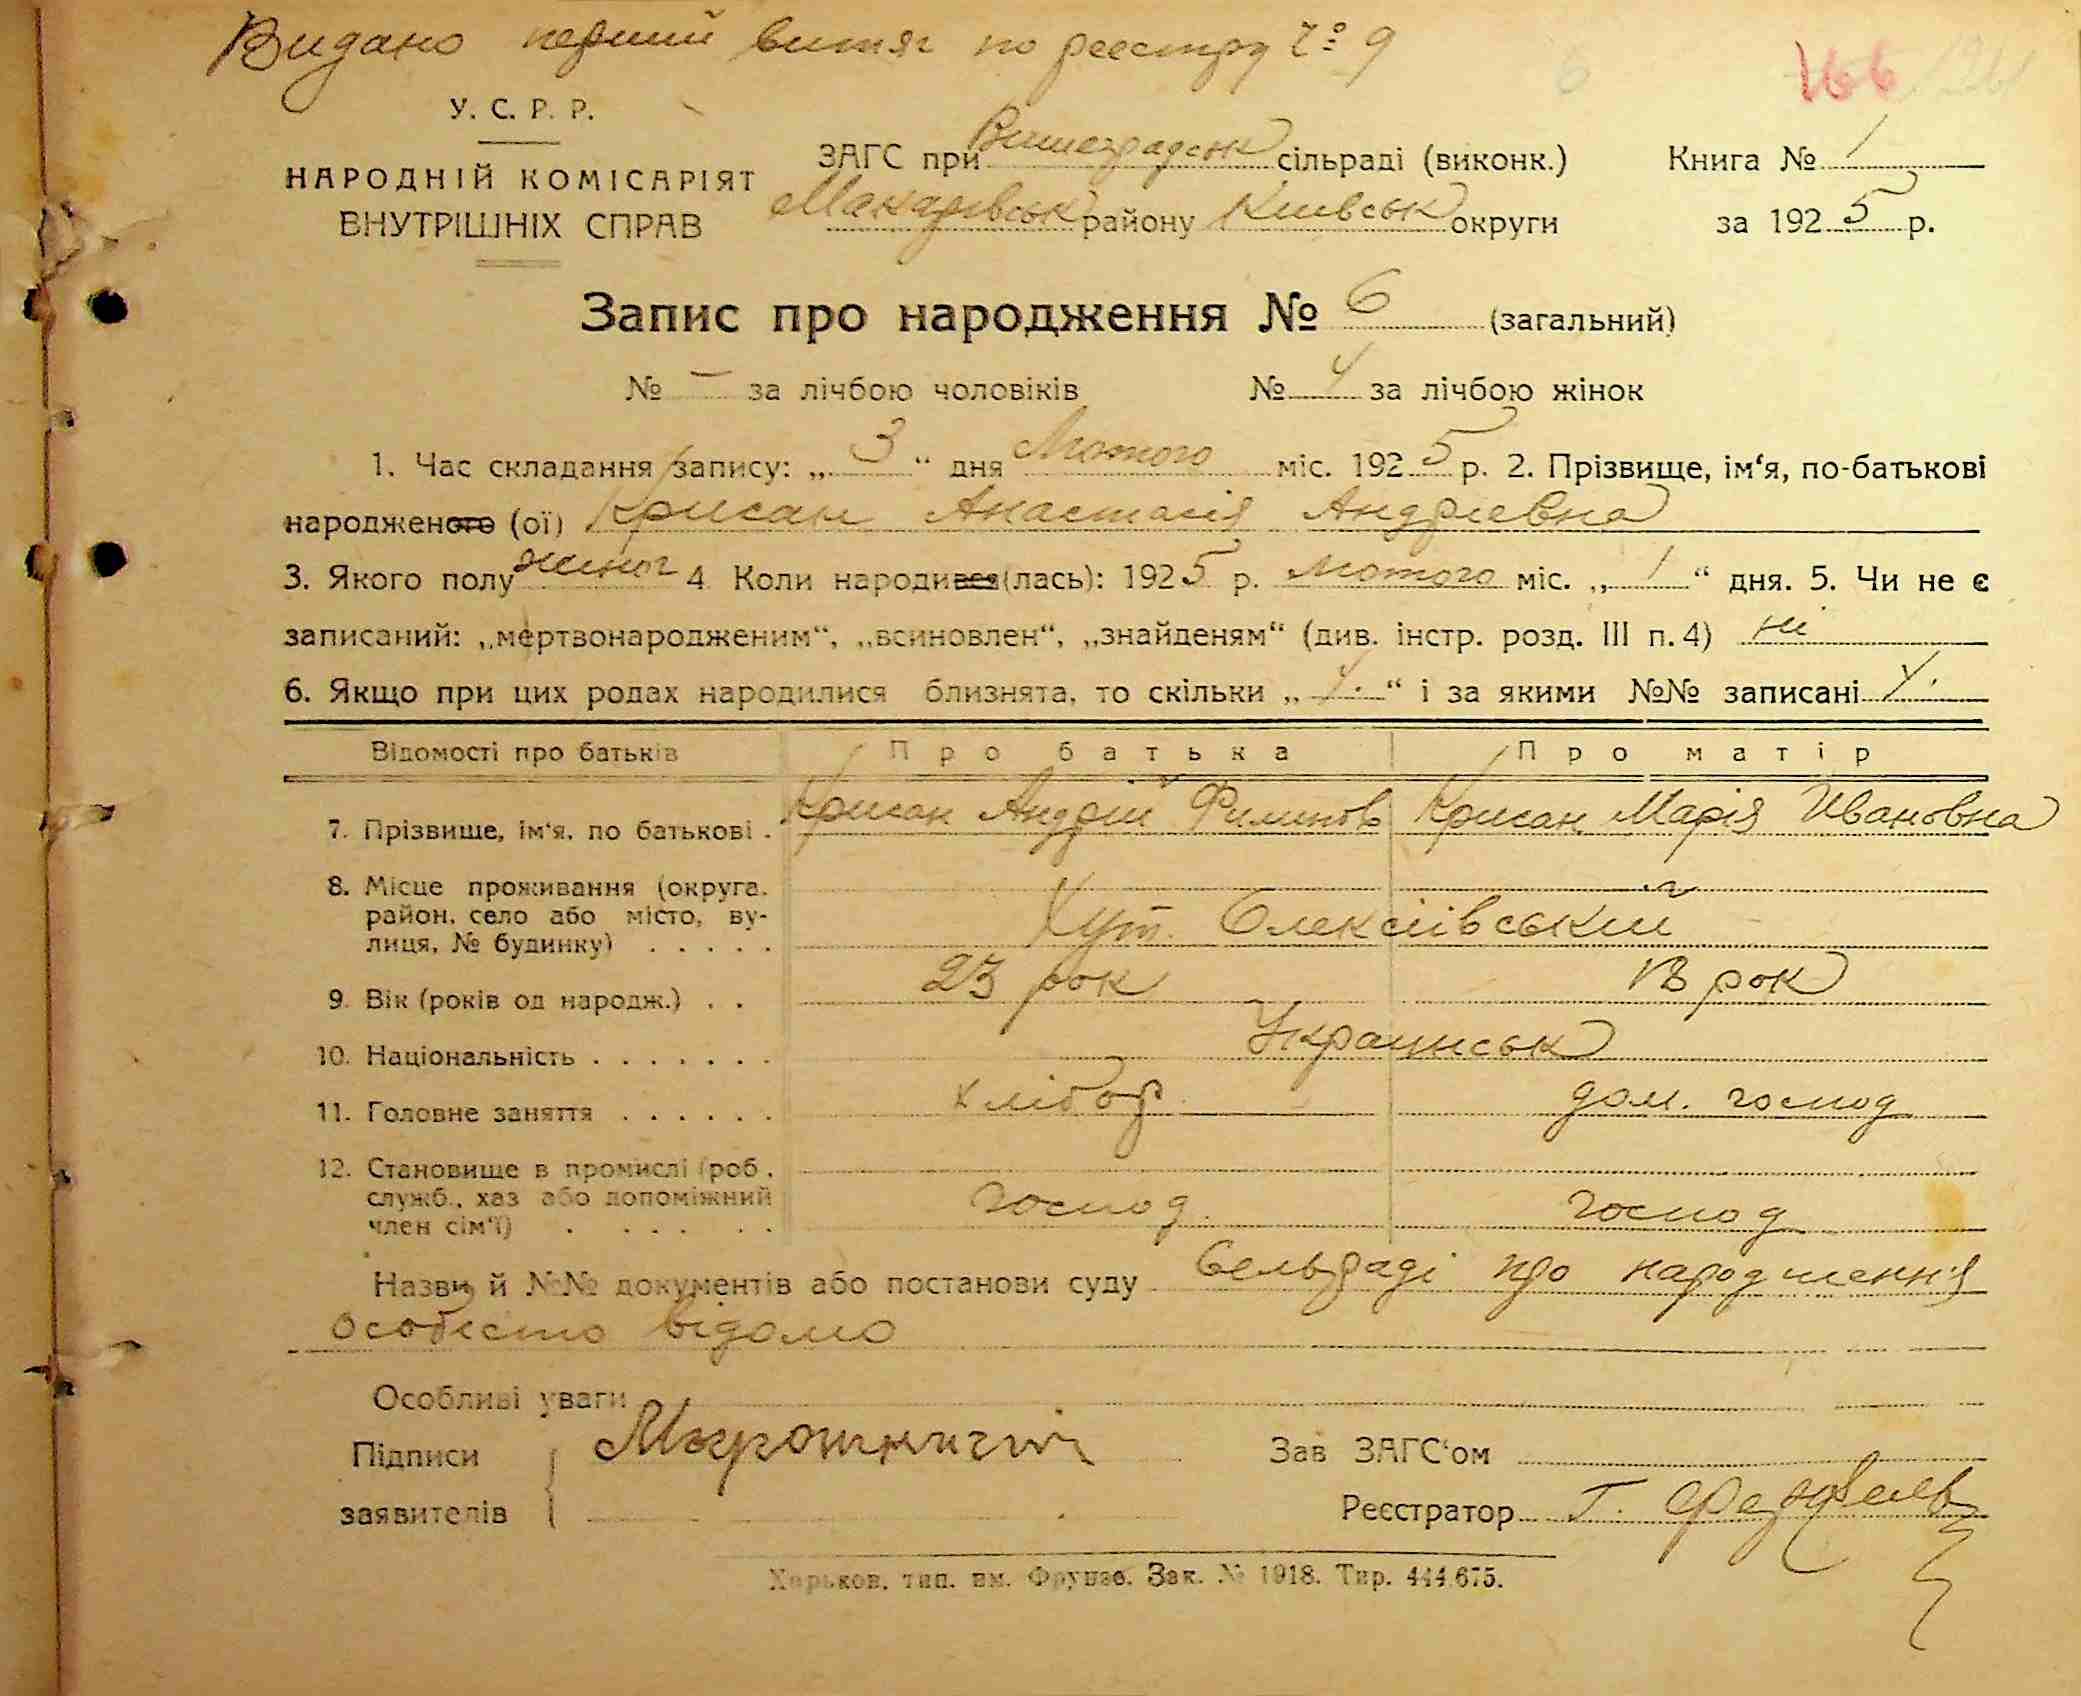 Видано перший витяг по реестру ч° 9
166
У. С. Р. Р.
НАРОДНІЙ КОМІСАРІЯТ
ВНУТРІШНІХ СПРАВ
ЗАГС при Вишеградськ сільраді (виконк.)
Макарівськ району Київськ округи
Книга № 1
за 1925 р.
Запис про народження № 6 (загальний)
№ – за лічбою чоловіків № 4 за лічбою жінок
1. Час складання запису: „3“ дня Лютого міс. 1925 р. 2. Прізвище, ім‘я, по-батькові
народженого (ої) Крисан Анастасія Андріевна
3. Якого полу жіноч 4 Коли народився(лась): 1925 р. лютого міс. „1“ дня. 5. Чи не є
записаний: „мертвонародженим“, „всиновлен“, „знайденям“ (див. інстр. розд. III п. 4) ні
6. Якщо при цих родах народилися близнята, то скільки „ “ і за якими №№ записані
Відомості про батьків Про батька Про матір
7. Прізвище, ім‘я, по батькові . Крисан Андрій Филипов Крисан Марія Ивановна
8. Місце проживання (округа.
район, село або місто, ву-
лиця, № будинку) . . . . . Хут. Олексіївський
9. Вік (років од народж.) . . 23 рок 18 рок
10. Національність . . . . . . . Українськ
11. Головне заняття . . . . . . хлібор дом. господ
12. Становище в промислі (роб.,
служб., хаз або допоміжний
член сім‘ї) . . . . . . господ господ
Назви й №№ документів або постанови суду Сельраді про народження
особисто відомо
Особливі уваги
Підписи
заявителів
Зав ЗАГС‘ом
Реєстратор Г.
Харьков, тип. им. Фрунзе. Зак. № 1918. Тир. 444.675.